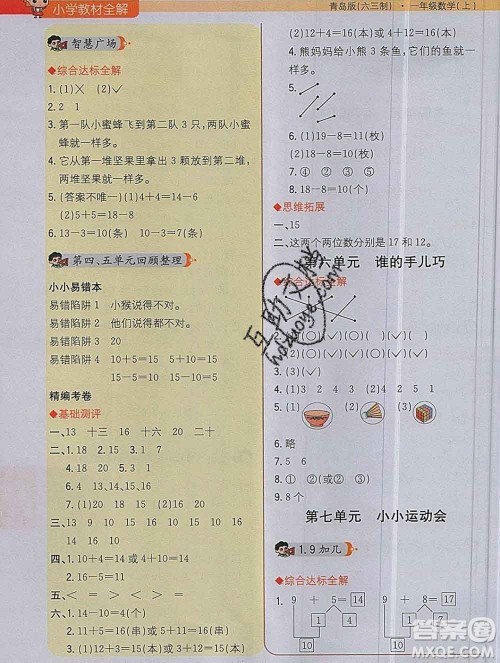 小学教材全解
青岛版(六三制)·一年级数学(上)
智慧广场
◆综合达标全解
1.(1)× (2)✓
2. 2 1
3. 第一队小蜜蜂飞到第二队 3 只,两队小蜜
蜂就一样多。
4. 它从第一堆坚果里拿出 3 颗放到第二堆,
两堆坚果就一样多。
5.(答案不唯一)(1)4+4=14-6
(2)5+5=18-8
6. 13-3=10(条) 10-3=7(条)
第四、五单元回顾整理
小小易错本
易错陷阱 1 小猴说得不对。
易错陷阱 2 他们说得都不对。
易错陷阱 4 10+5=15 5+10=15
15-5=10 15-10=5
精编考卷
◆基础测评
一、13 十三 16 十六 20 二十
二、1. 20 19 16 13
2. 4
3. 14 6
4. 16 18 15 17
5. 10
6. 5 15
7. (1)18 (2)17 20
三、13 9 10 15 16 10 9 15
10 10 10 10
四、1. 10+4=14
2. 16-5=11
五、< = > = < >
六、1. 14-10=4(个)
2. 11+5=16(串)或5+11=16(串)
3. (1)15-4=11(本)
(2)12+4=16(本)或4+12=16(本)
4. 熊妈妈给小熊 3 条鱼,它们的鱼就一样多。
5.
6. (1)19-8=11(枚)
(2)18-8=10(枚)
7. ④ ② ③ ⑤
8. 18-8=10(个)
◆思维拓展
一、15
二、这两个两位数分别是 17 和 12。
第六单元 谁的手儿巧
◆综合达标全解
1.
2. (1)(○)(✓)( ) (2)(○)( )(✓)
3. (✓)( )(✓)( )(✓)
4. (1)(✓)( )( ) (2)3 4 2 5 1
5.
6. 略
7. 5 6
8. ① ②(或② ①)
9. 8个
第七单元 小小运动会
1. 9 加几
◆综合达标全解
1. 9 + 5 = 14 9 + 8 = 17
1 4 1 7
10 10
互助文档
hozuoye.com
答案圈
MXQE.COM